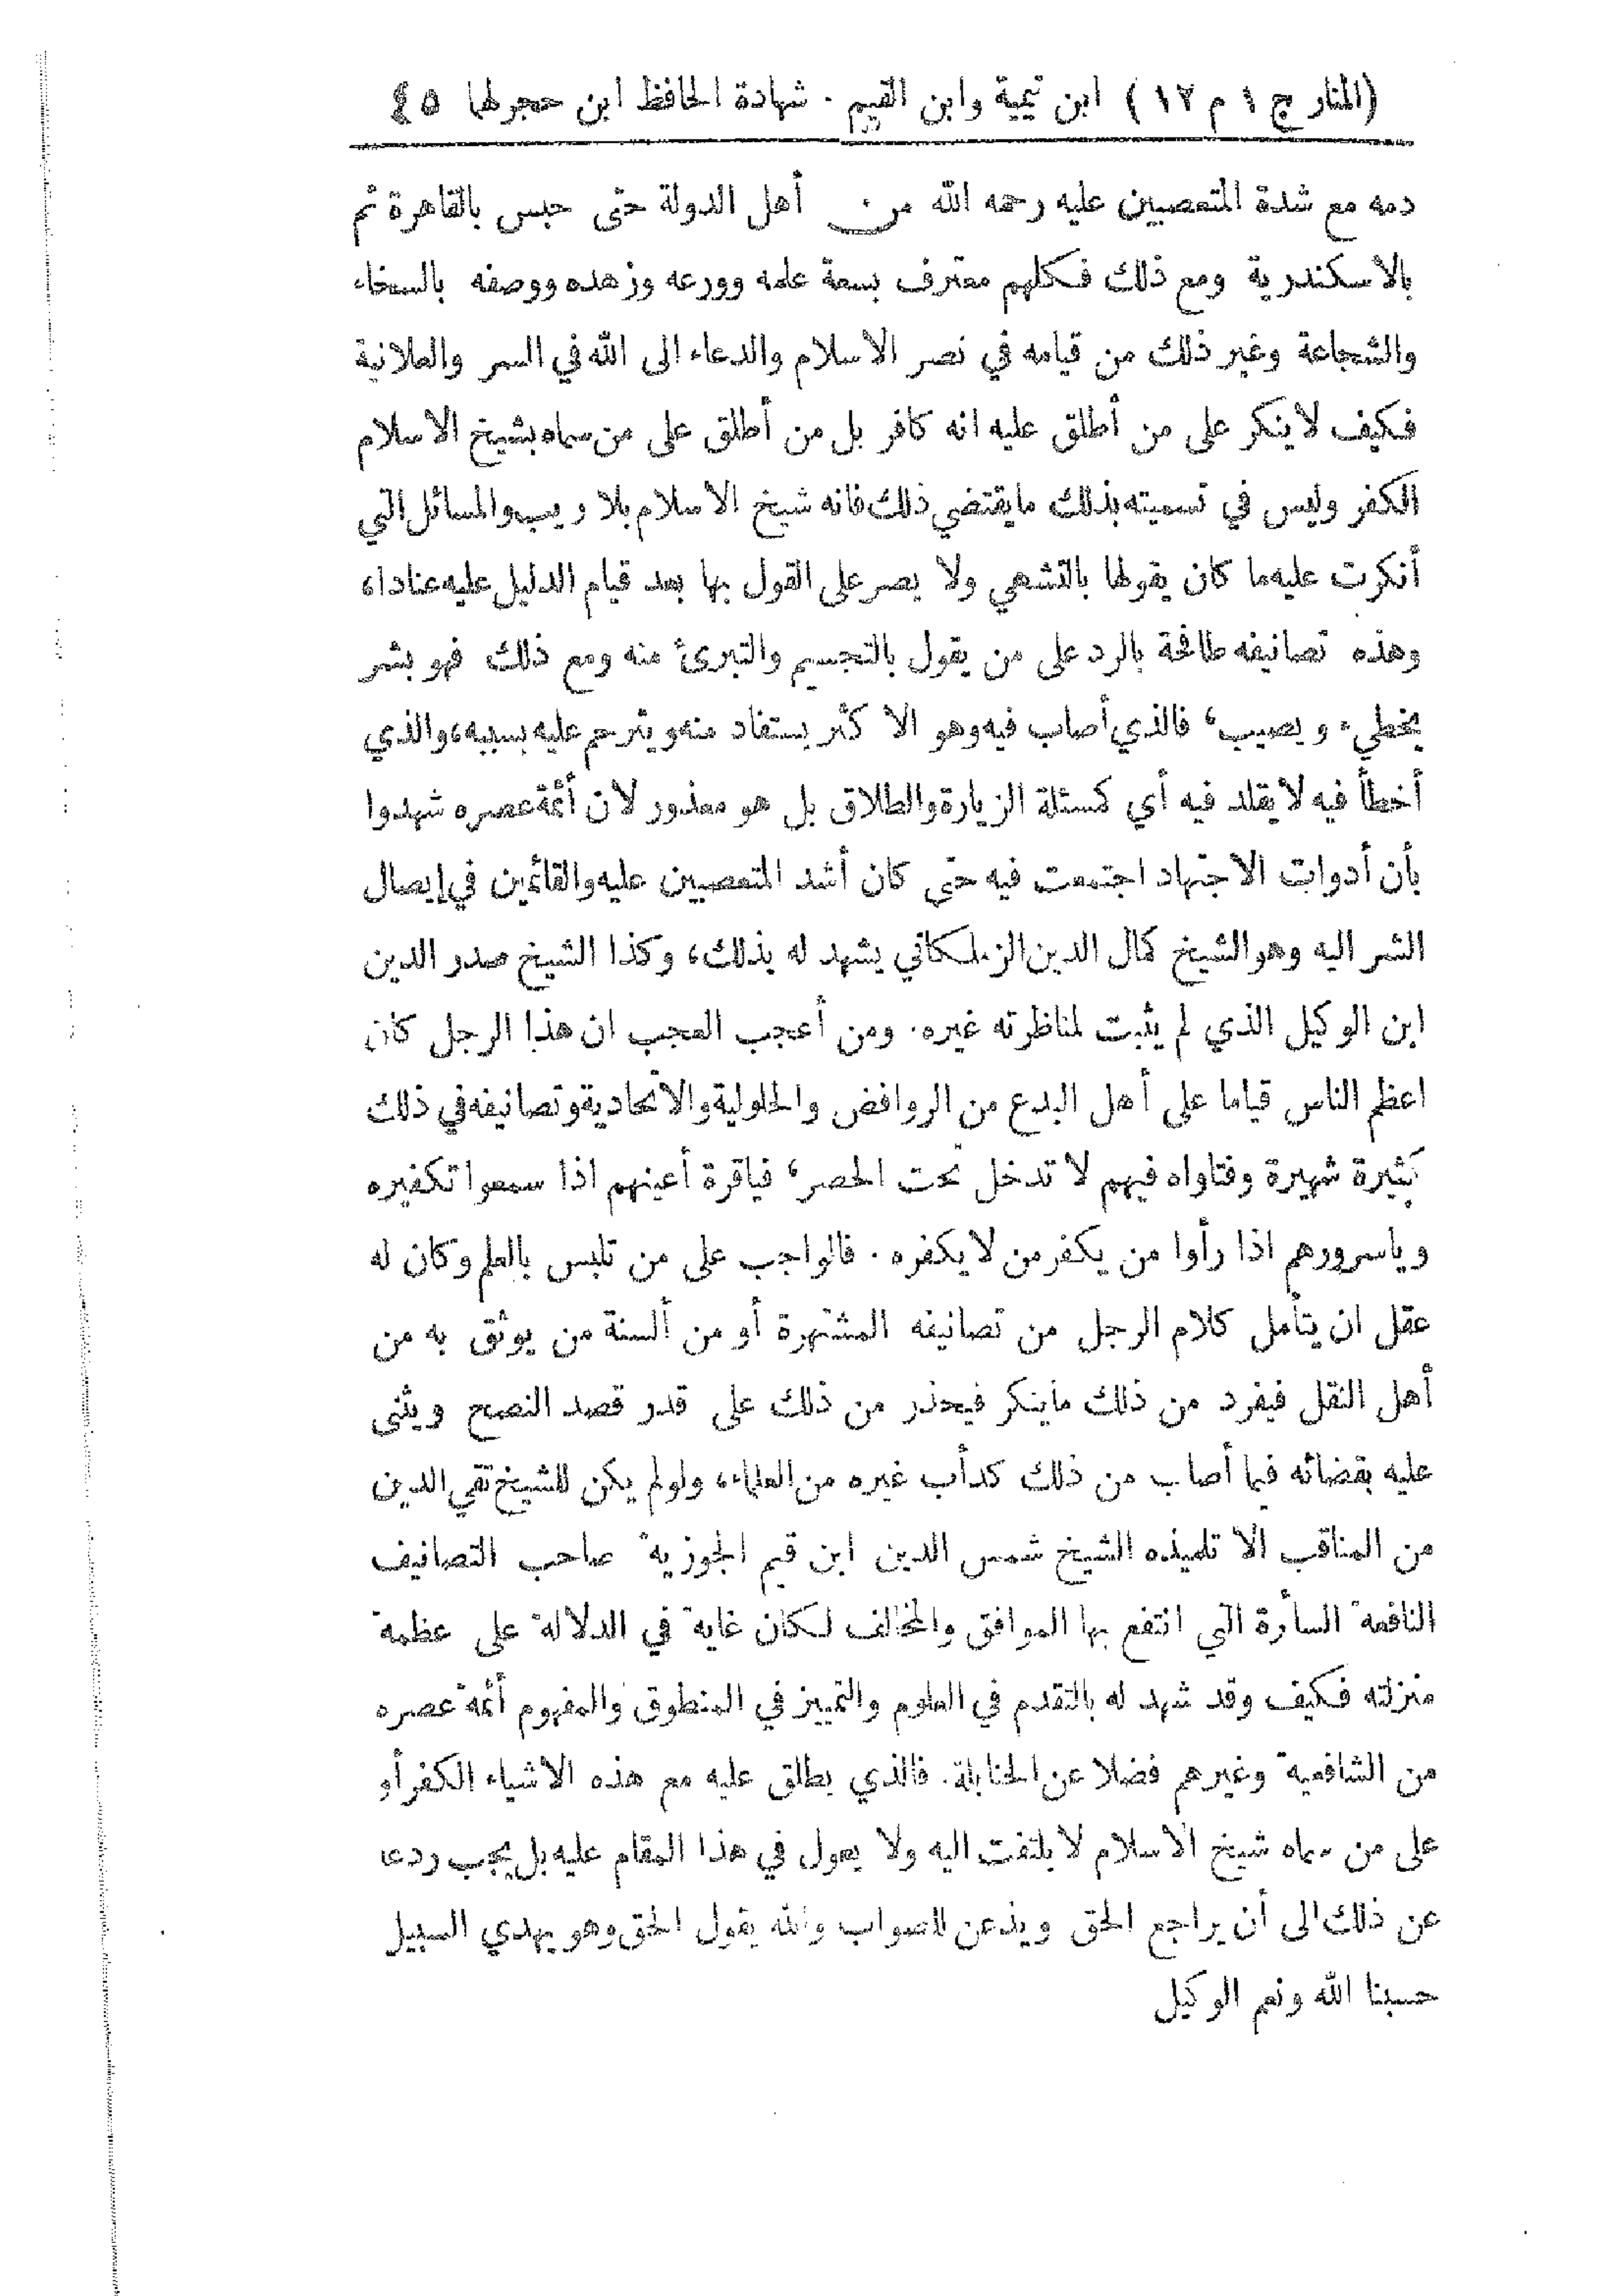 (المنار ج ١ م ١٢) ابن تيمية وابن القيم . شهادة الحافظ ابن حجر لهما ٤٥
دمه مع شدة المتعصبين عليه رحمه الله من أهل الدولة حتى حبس بالقاهرة ثم
بالاسكندرية ومع ذلك فكلهم معترف بسعة علمه وورعه وزهده ووصفه بالسخاء
والشجاعة وغير ذلك من قيامه في نصر الاسلام والدعاء الى الله في السر والعلانية
فكيف لا ينكر على من أطلق عليه انه كافر بل من أطلق على من سماه بشيخ الاسلام
الكفر وليس في تسميته بذلك ما يقتضي ذلك فانه شيخ الاسلام بلا ريب والمسائل التي
أنكرت عليه ما كان يقولها بالتشهي ولا يصر على القول بها بعد قيام الدليل عليه عنادا،
وهذه تصانيفه طافحة بالرد على من يقول بالتجسيم والتبرئ منه ومع ذلك فهو بشر
يخطيء ويصيب، فالذي أصاب فيه وهو الا كثر يستفاد منه ويترحم عليه بسببه، والذي
أخطأ فيه لا يقلد فيه أي كمسئلة الزيارة والطلاق بل هو معذور لان أئمة عصره شهدوا
بأن أدوات الاجتهاد اجتمعت فيه حتى كان أشد المتعصبين عليه والقائمين في إيصال
الشر اليه وهو الشيخ كمال الدين الزملكاني يشهد له بذلك، وكذا الشيخ صدر الدين
ابن الوكيل الذي لم يثبت لمناظرته غيره. ومن أعجب العجب ان هذا الرجل كان
اعظم الناس قياما على أهل البدع من الروافض والحلولية والاتحادية وتصانيفه في ذلك
كثيرة شهيرة وفتاواه فيهم لا تدخل تحت الحصر، فياقرة أعينهم اذا سمعوا تكفيره
وياسرورهم اذا رأوا من يكفر من لا يكفره . فالواجب على من تلبس بالعلم وكان له
عقل ان يتأمل كلام الرجل من تصانيفه المشتهرة أو من ألسنة من يوثق به من
أهل النقل فيفرد من ذلك ما ينكر فيحذر من ذلك على قدر قصد النصح ويثنى
عليه بقضائه فيما أصاب من ذلك كدأب غيره من العلماء، ولو لم يكن للشيخ تقي الدين
من المناقب الا تلميذه الشيخ شمس الدين ابن قيم الجوزية صاحب التصانيف
النافعة السائرة التي انتفع بها الموافق والمخالف لكان غاية في الدلالة على عظمة
منزلته فكيف وقد شهد له بالتقدم في العلوم والتمييز في المنطوق والمفهوم أئمة عصره
من الشافعية وغيرهم فضلا عن الحنابلة. فالذي يطلق عليه مع هذه الاشياء الكفر أو
على من سماه شيخ الاسلام لا يلتفت اليه ولا يعول في هذا المقام عليه بل يجب ردعه
عن ذلك الى أن يراجع الحق ويذعن للصواب والله يقول الحق وهو يهدي السبيل
حسبنا الله ونعم الوكيل